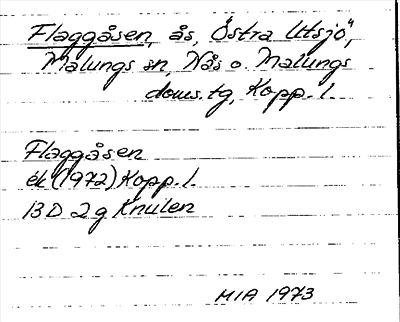 Flaggåsen, ås, Östra Utsjö,
Malungs sn, Nås o. Malungs
doms.tg, Kopp. l.
Flaggåsen
ek (1972) Kopp. l.
13 D 2 g Knulen
MIA 1973